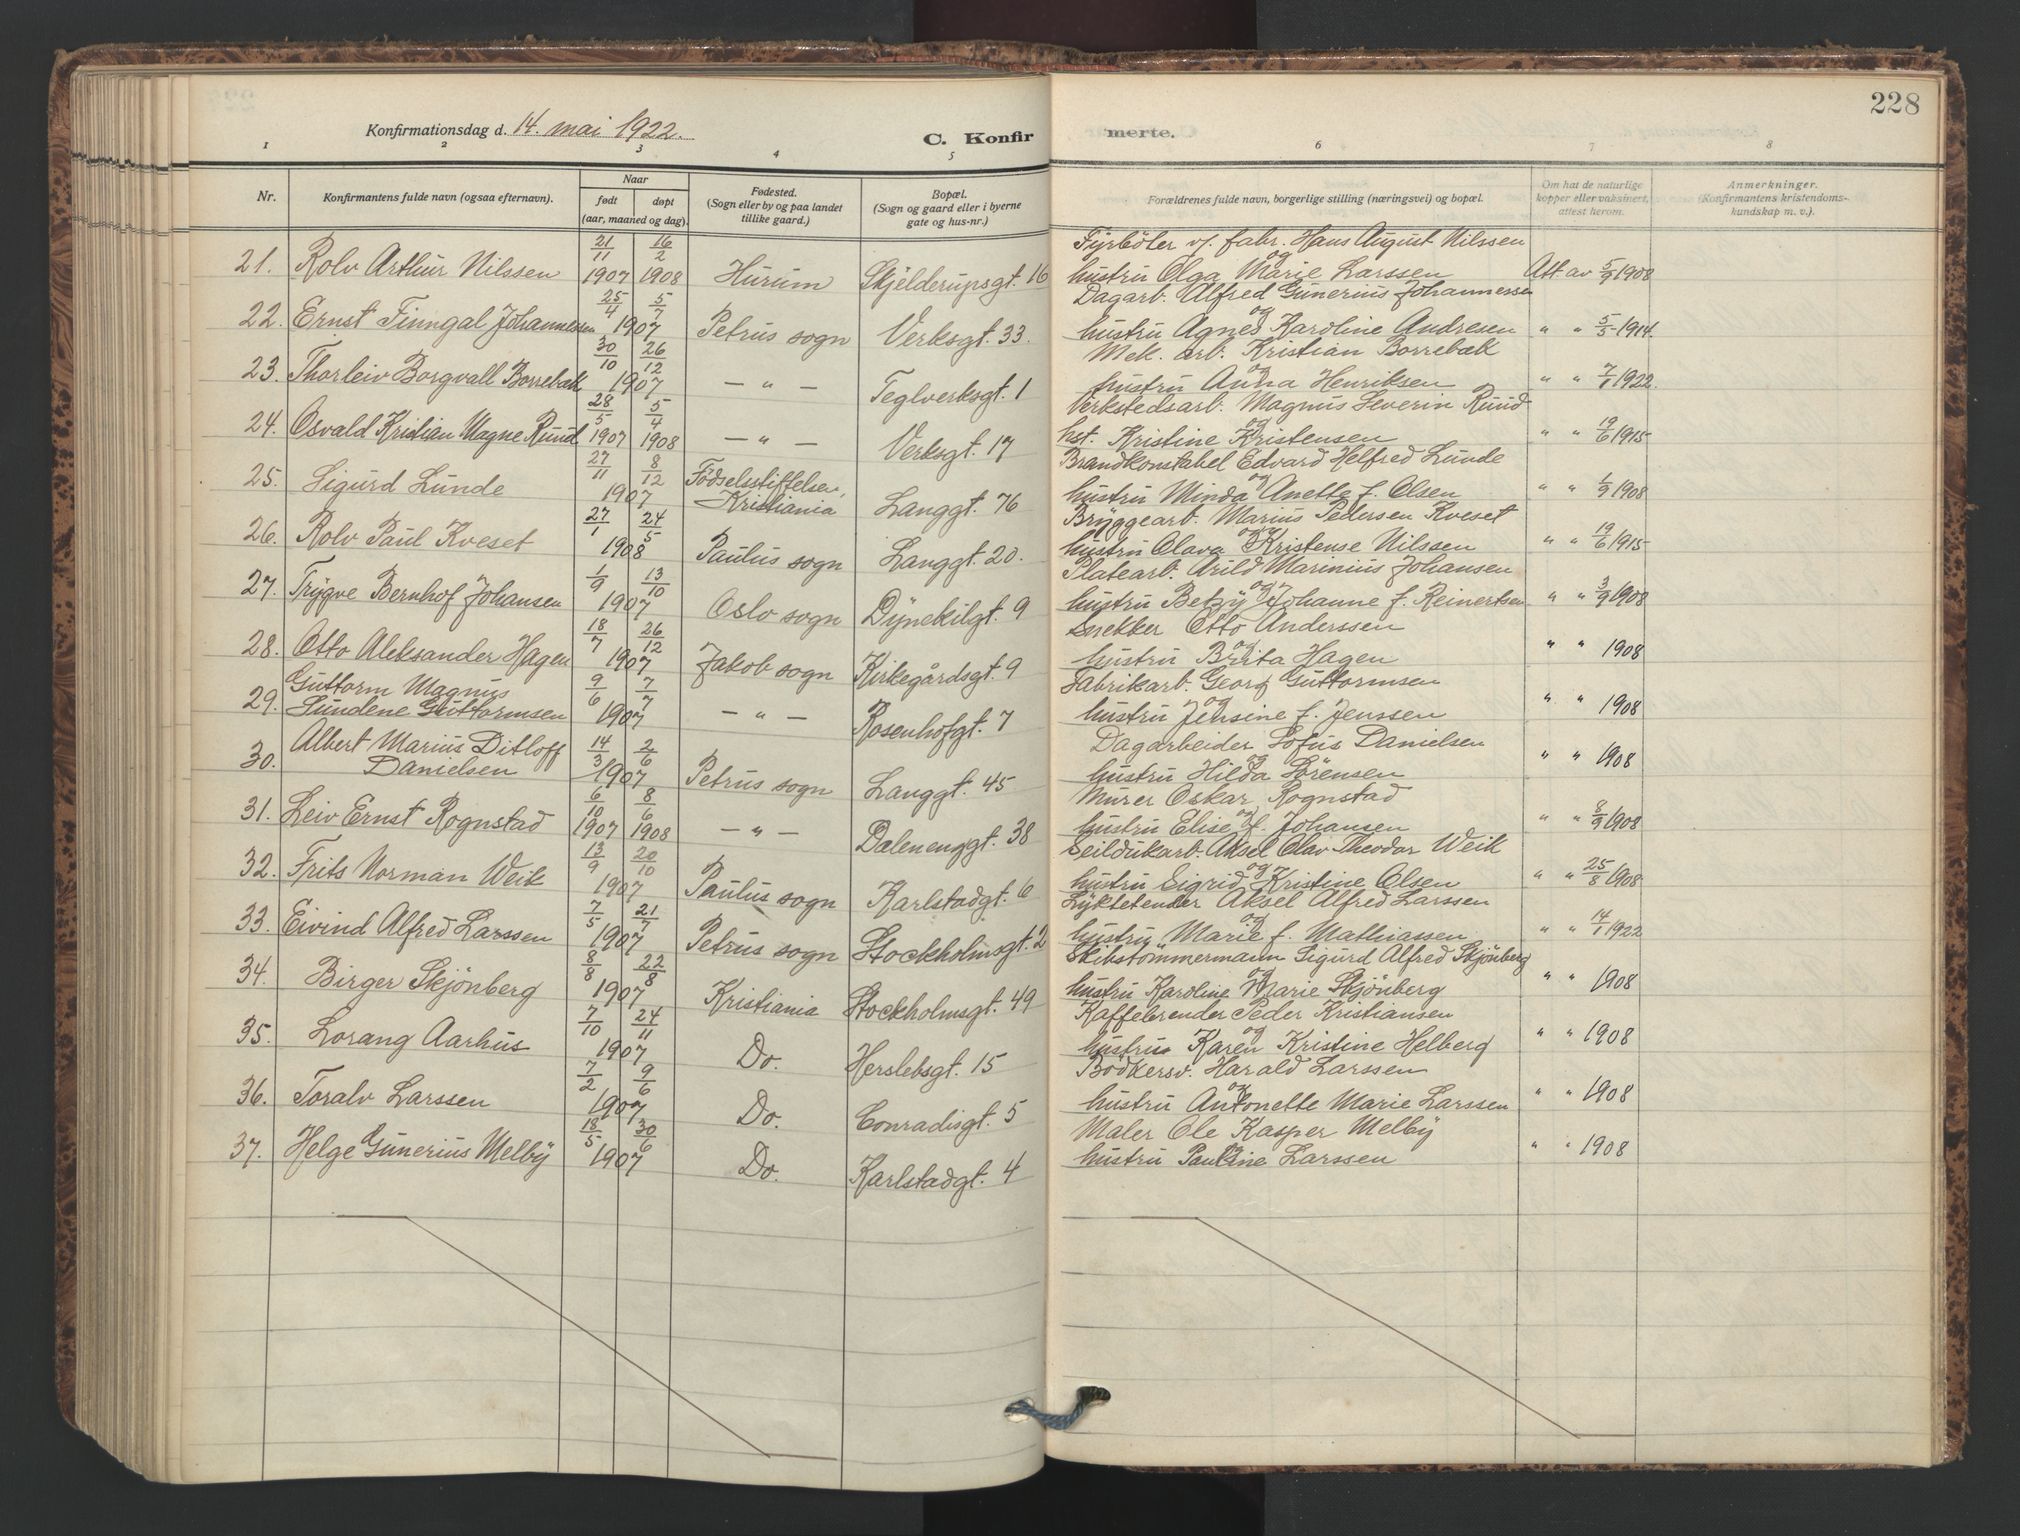 228
Konfirmationsdag d. 14. mai 1922.
C. Konfirmerte.
1 2 3 4 5 6 7 8
Nr. Konfirmantens fulde navn (ogsaa efternavn). Naar født døpt (aar, maaned og dag). Fødested. (Sogn eller by og paa landet tillike gaard.) Bopæl. (Sogn og gaard eller i byerne gate og hus-nr.) Forældrenes fulde navn, borgerlige stilling (næringsvei) og bopæl. Om hat de naturlige kopper eller vaksinert, attest herom. Anmerkninger. (Konfirmantens kristendomskundskap m. v.).
21. Rolv Arthur Nilssen 21/11 1907 16/2 1908 Hurum Skjelderupsgt. 16 Fyrbøter v/ fabr. Hans August Nilssen og
hustru Olga Marie Larssen Att. av 5/9 1908
22. Ernst Finngal Johannessen 25/4 5/7 1907 Petrus sogn Verksgt. 33. Dagarb. Alfred Gunerius Johannessen og
hustru Agnes Karoline Andresen " " 5/5 1914
23. Thorleiv Borgvall Borrebæk 30/10 26/12 1907 — " — Teglverksgt. 1 Mek. arb. Kristian Borrebæk og
hustru Anna Henriksen " " 7/1 1922.
24. Osvald Kristian Magne Ruud 28/5 1907 5/4 1908 — " — Verksgt. 17 Verkstedsarb. Magnus Severin Ruud og
hst. Kristine Kristensen " " 19/6 1915
25. Sigurd Lunde 27/11 8/12 1907 Fødselsstiftelsen, Kristiania Langgt. 76 Brandkonstabel Edvard Helfred Lunde og
hustru Minda Anette f. Olsen " " 1/9 1908
26. Rolv Paul Kveset 27/1 24/5 1908 Paulus sogn Langgt. 20. Bryggearb. Marius Pedersen Kveset og
hustru Olava Kristense Nilssen " " 19/6 1915
27. Trygve Bernhof Johansen 1/9 13/10 1907 Oslo sogn Dynekilgt. 9 Platearb. Arild Marinius Johansen og
hustru Betzy Johanne f. Reinertsen " " 3/9 1908
28. Otto Aleksander Hagen 18/7 26/12 1907 Jakob sogn Kirkegårdsgt. 9 Snekker Otto Anderssen og
hustru Brita Hagen " " 1908
29. Guttorm Magnus Sundene Guttormsen 9/6 7/7 1907 — " — Rosenhofgt. 7 Fabrikarb. Georg Guttormsen og
hustru Jensine f. Jenssen " " 1908
30. Albert Marius Ditloff Danielsen 14/3 2/6 1907 Petrus sogn Langgt. 45 Dagarbeider Sofus Danielsen og
hustru Hilda Sørensen " " 1908
31. Leiv Ernst Rognstad 6/10 1907 8/6 1908 — " — Dalenenggt. 38 Murer Oskar Rognstad og
hustru Elise f. Johansen " " 8/9 1908
32. Frits Norman Weik 13/9 20/10 1907 Paulus sogn Karlstadgt. 6 Seildukarb. Aksel Olav Theodor Weik og
hustru Sigrid Kristine Olsen " " 25/8 1908
33. Eivind Alfred Larssen 7/5 21/7 1907 Petrus sogn Stockholmsgt. 2 Lyktetender Aksel Alfred Larssen og
hustru Marie f. Mathiassen " " 14/1 1922
34. Birger Skjönberg 8/8 22/8 1907 Kristiania Stockholmsgt. 49 Skibstömmermann Sigurd Alfred Skjönberg og
hustru Karoline Marie Skjönberg " " 1908
35. Lorang Aarhus 7/10 24/11 1907 Do. Herslebsgt. 15 Kaffebrender Peder Kristiansen og
hustru Karen Kristine Helberg " " 1908
36. Toralv Larssen 7/2 9/6 1907 Do. Conradisgt. 5 Bödkersv. Harald Larssen og
hustru Antonette Marie Larssen " " 1908
37. Helge Gunerius Melby 18/5 30/6 1907 Do. Karlstadgt. 4 Maler Ole Kasper Melby og
hustru Pauline Larssen " " 1908